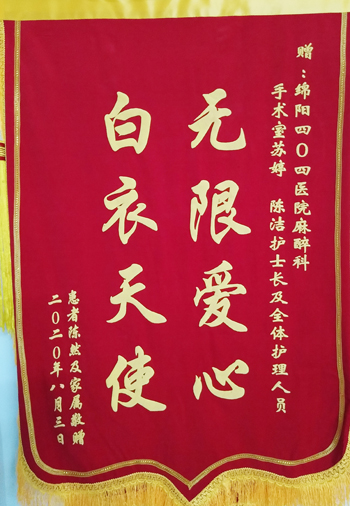 赠：绵阳四〇四医院麻醉科
手术室苏婷 陈洁护士长及全体护理人员
无限爱心
白衣天使
患者陈然及家属敬赠
二〇二〇年八月三日